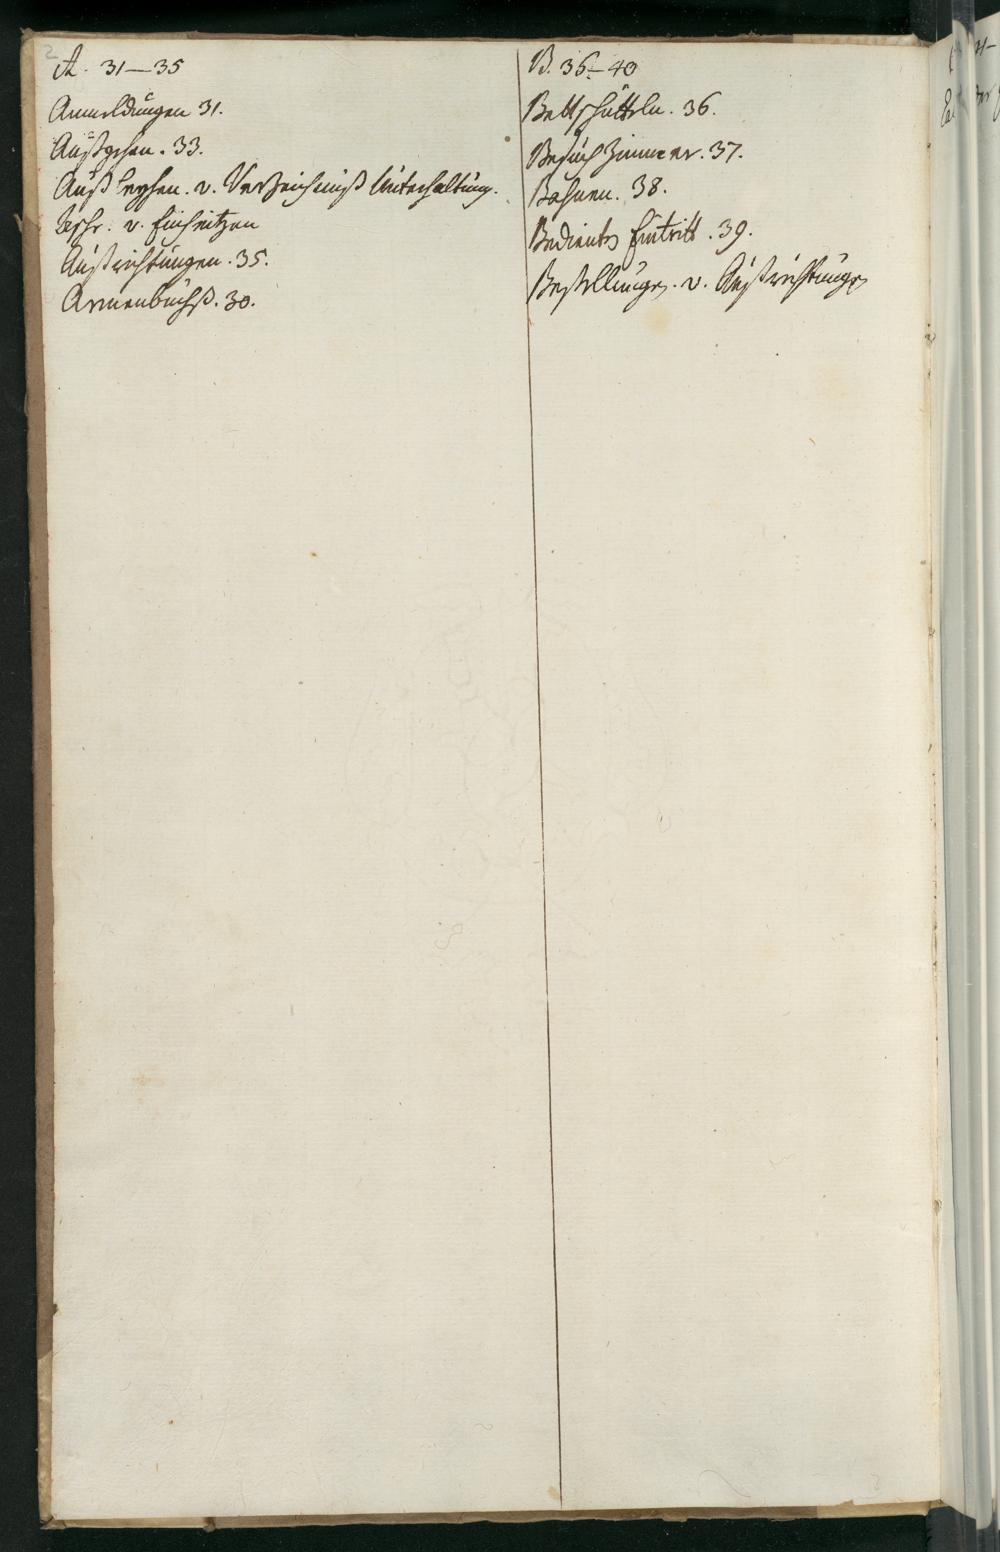 2
A. 31–35
Anmeldungen 31.
Außgehen. 33.
Außleyhen. v. Verzeichniß Unterhaltung.
v. Einheitzen
Außrichtungen. 35.
Armenbüchß. 30.
B. 36–40
Bettschütteln. 36.
Besuch Zimmer. 37.
Bohnen. 38.
Bedienten Eintritt. 39.
Bestellungen. v. Außrichtungen